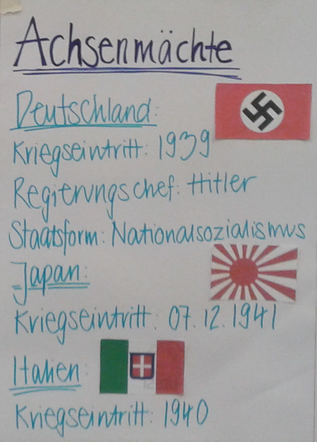 Achsenmächte
Deutschland:
Kriegseintritt: 1939
Regierungschef: Hitler
Staatsform: Nationalsozialismus
Japan:
Kriegseintritt: 07.12.1941
Italien:
Kriegseintritt: 1940